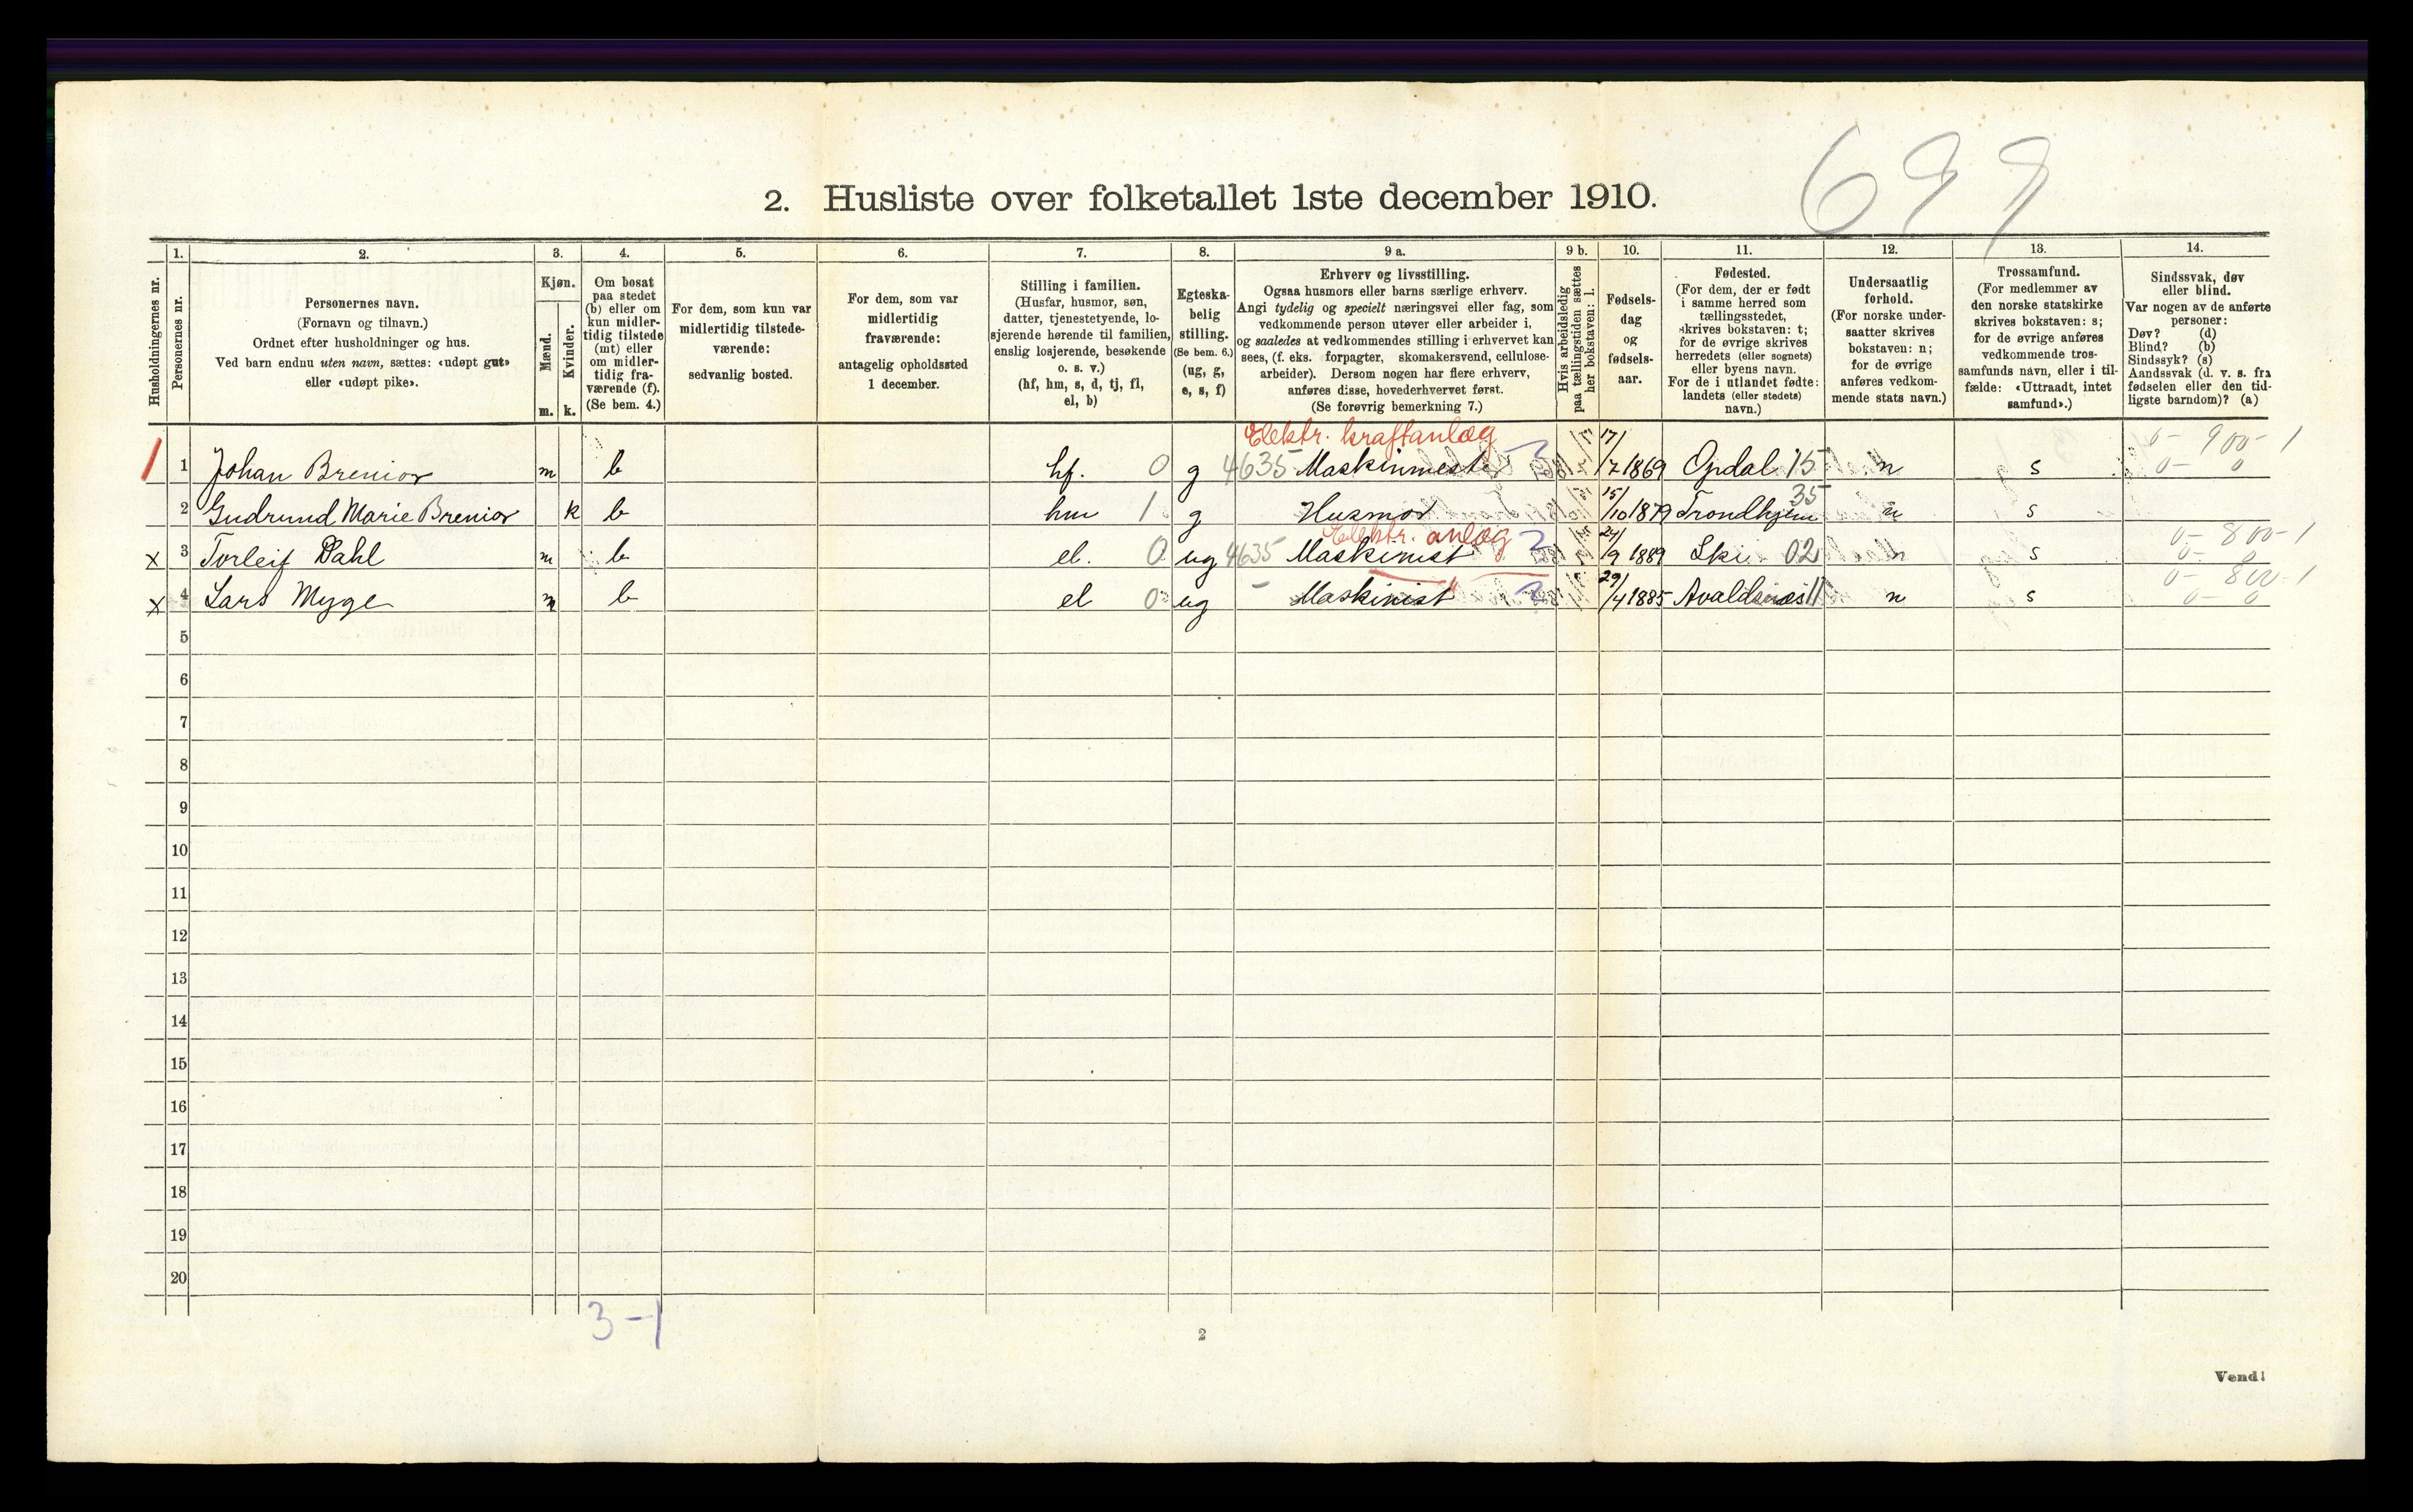 699
2. Husliste over folketallet 1ste december 1910.
Husholdningernes nr.
1.
Personernes nr.
2.
Personernes navn.
(Fornavn og tilnavn.)
Ordnet efter husholdninger og hus.
Ved barn endnu uten navn, sættes: «udøpt gut»
eller «udøpt pike».
3.
Kjøn.
Mænd.
Kvinder.
m. k.
4.
Om bosat
paa stedet
(b) eller om
kun midler-
tidig tilstede
(mt) eller
om midler-
tidig fra-
værende (f).
(Se bem. 4.)
5.
For dem, som kun var
midlertidig tilstede-
værende:
sedvanlig bosted.
6.
For dem, som var
midlertidig
fraværende:
antagelig opholdssted
1 december.
7.
Stilling i familien.
(Husfar, husmor, søn,
datter, tjenestetyende, lo-
sjerende hørende til familien,
enslig losjerende, besøkende
o. s. v.)
(hf, hm, s, d, tj, fl,
el, b)
8.
Egteska-
belig
stilling.
(Se bem. 6.)
(ug, g,
e, s, f)
9 a.
Erhverv og livsstilling.
Ogsaa husmors eller barns særlige erhverv.
Angi tydelig og specielt næringsvei eller fag, som
vedkommende person utøver eller arbeider i,
og saaledes at vedkommendes stilling i erhvervet kan
sees, (f. eks. forpagter, skomakersvend, cellulose-
arbeider). Dersom nogen har flere erhverv,
anføres disse, hovederhvervet først.
(Se forøvrig bemerkning 7.)
9 b.
Hvis arbeidsledig
paa tællingstiden sættes
her bokstaven: l.
10.
Fødsels-
dag
og
fødsels-
aar.
11.
Fødested.
(For dem, der er født
i samme herred som
tællingsstedet,
skrives bokstaven: t;
for de øvrige skrives
herredets (eller sognets)
eller byens navn.
For de i utlandet fødte:
landets (eller stedets)
navn.)
12.
Undersaatlig
forhold.
(For norske under-
saatter skrives
bokstaven: n;
for de øvrige
anføres vedkom-
mende stats navn.)
13.
Trossamfund.
(For medlemmer av
den norske statskirke
skrives bokstaven: s;
for de øvrige anføres
vedkommende tros-
samfunds navn, eller i til-
fælde: «Uttraadt, intet
samfund».)
14.
Sindssvak, døv
eller blind.
Var nogen av de anførte
personer:
Døv? (d)
Blind? (b)
Sindssyk? (s)
Aandssvak (d. v. s. fra
fødselen eller den tid-
ligste barndom)? (a)
Elektr. kraftanlæg
0- 900- 1
1 1 Johan Brenior m b hf. 0 g 4635 Maskinmester 17/7 1869 Opdal 15 n s 0- 0
2 Gudrund Marie Brenior k b hm 1 g Husmor 15/10 1879 Trondhjem 35 n s
Elektr. anlæg
0- 800- 1
x 3 Torleif Dahl m b el. 0 ug 4635 Maskinist 2 24/9 1889 Ski 02 n s 0- 0
0- 800- 1
x 4 Lars Myge m b el 0 ug – Maskinist " 2 29/4 1885 Avaldsnæs 11 n s 0- 0
5
6
7
8
9
10
11
12
13
14
15
16
17
18
19
20
3-1
2
Vend!